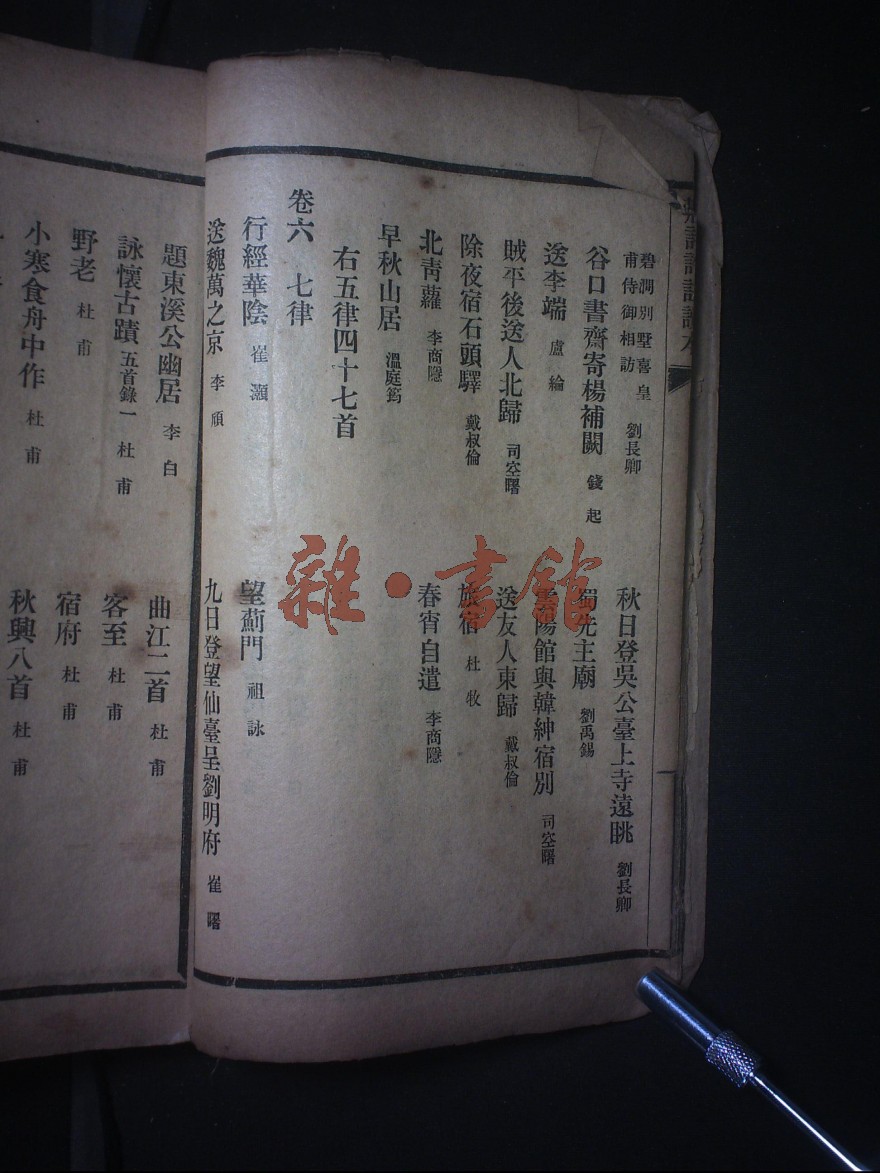 碧澗別墅喜皇
甫侍御相訪 劉長卿 秋日登吳公臺上寺遠眺 劉長卿
谷口書齋寄楊補闕 錢起 蜀先主廟 劉禹錫
送李端 盧綸 雲陽館與韓紳宿別 司空曙
賊平後送人北歸 司空曙 送友人東歸 戴叔倫
除夜宿石頭驛 戴叔倫 旅宿 杜牧
北青蘿 李商隱 春宵自遣 李商隱
早秋山居 溫庭筠
右五律四十七首
卷六 七律
行經華陰 崔灝 望薊門 祖詠
送魏萬之京 李頎 九日登望仙臺呈劉明府 崔曙
題東溪公幽居 李白 曲江二首 杜甫
詠懷古蹟 五首錄一 杜甫 客至 杜甫
野老 杜甫 宿府 杜甫
小寒食舟中作 杜甫 秋興八首 杜甫
雜·書館